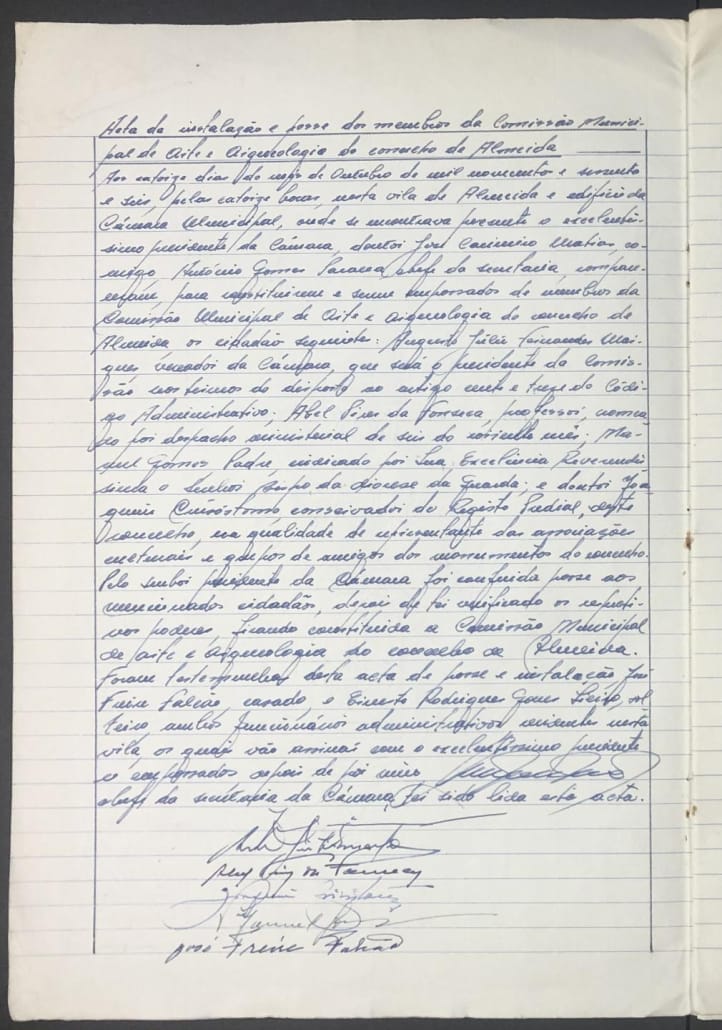 Acta da instalação e posse dos membros da Comissão Munici-
pal de Arte e Arqueologia do concelho de Almeida
Aos catorze dias do mês de Outubro de mil novecentos e sessenta
e seis, pelas catorze horas, nesta vila de Almeida e edifício da
Câmara Municipal, onde se encontrava presente o excelentís-
simo presidente da Câmara, doutor José Casimiro Matias, co-
migo António Gomes Saraiva, chefe da secretaria, compare-
ceram, para constituirem e serem empossados de membros da
Comissão Municipal de Arte e Arqueologia do concelho de
Almeida os cidadão seguintes: Augusto Júlio Fernandes Mar-
ques vereador da Câmara, que será o presidente da Comis-
são nos termos do disposto no artigo cento e treze do Códi-
go Administrativo; Abel Pires da Fonseca, professor, nomea-
do por despacho ministerial de seis do corrente mês; Ma-
nuel Gomes Padre, indicado por Sua Excelência Reverendís-
sima o Senhor Bispo da diocese da Guarda; e doutor Joa-
quim Crisóstomo conservador do Registo Predial, deste
concelho, na qualidade de representante das associações
culturais e grupos de amigos dos monumentos do concelho.
Pelo senhor presidente da Câmara foi conferida posse aos
mencionados cidadãos, depois de ter verificado os respecti-
vos poderes, ficando constituida a Comissão Municipal
de arte e Arqueologia do concelho de Almeida.
Foram testemunhas desta acta de posse e instalação José
Freire Falcão, casado, e Ernesto Rodrigues Gomes, sol
teiro, ambos funcionários administrativos residentes nesta
vila, os quais vão assinar com o excelentíssimo presidente
e empossados depois de por mim
chefe da secretaria da Câmara, ter sido lida esta acta.
Manuel
José Freire Falcão